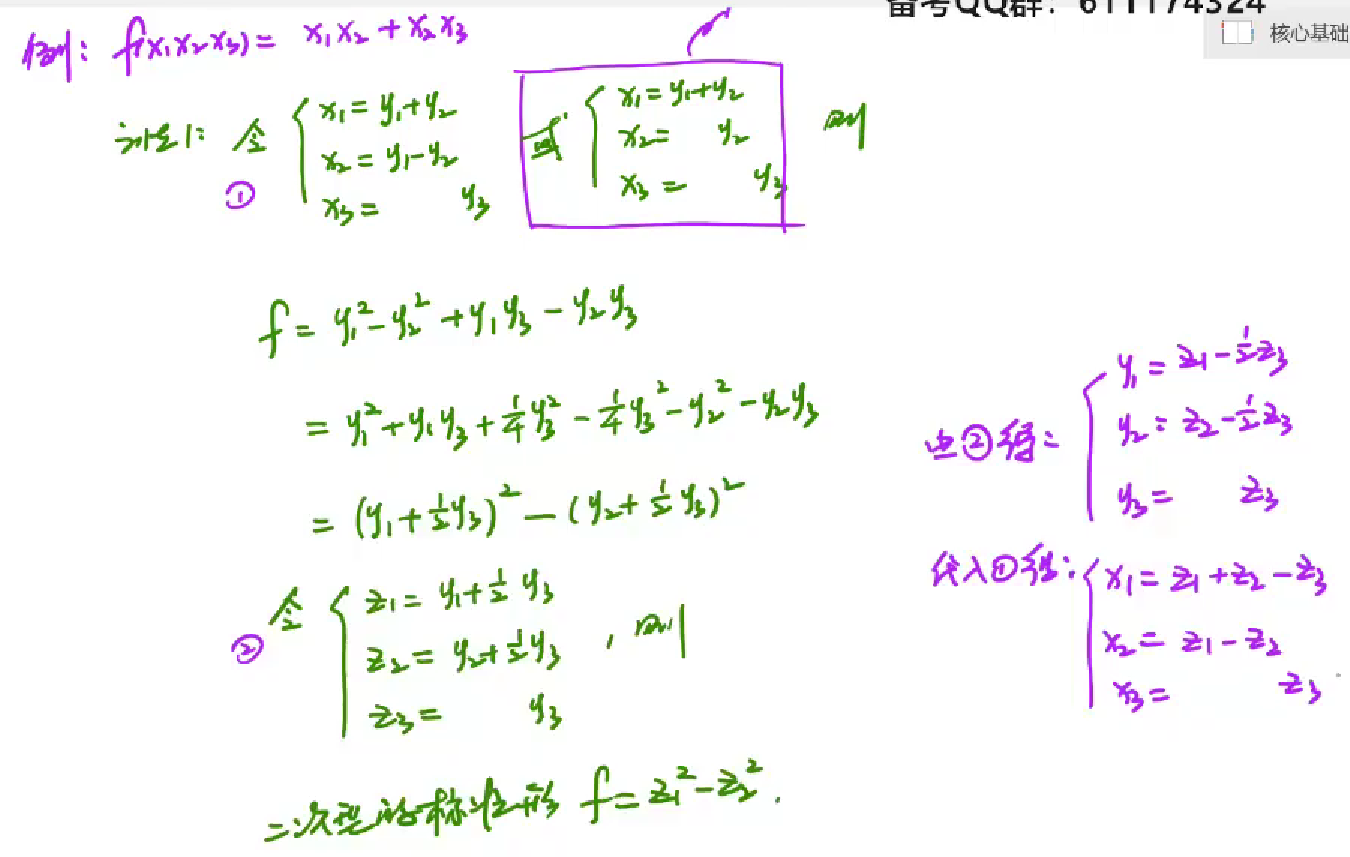 备考QQ群：611174324
核心基础
例：f(x₁x₂x₃) = x₁x₂ + x₂x₃
法1：令 ① { x₁ = y₁+y₂
x₂ = y₁-y₂
x₃ = y₃
或 { x₁ = y₁+y₂
x₂ = y₂
x₃ = y₃
则
f = y₁² - y₂² + y₁y₃ - y₂y₃
= y₁² + y₁y₃ + ¼y₃² - ¼y₃² - y₂² - y₂y₃
= (y₁ + ½y₃)² - (y₂ + ½y₃)²
令 ② { z₁ = y₁ + ½y₃
z₂ = y₂ + ½y₃ ，则
z₃ = y₃
二次型的标准形 f = z₁² - z₂².
由②得： { y₁ = z₁ - ½z₃
y₂ = z₂ - ½z₃
y₃ = z₃
代入①得： { x₁ = z₁ + z₂ - z₃
x₂ = z₁ - z₂
x₃ = z₃